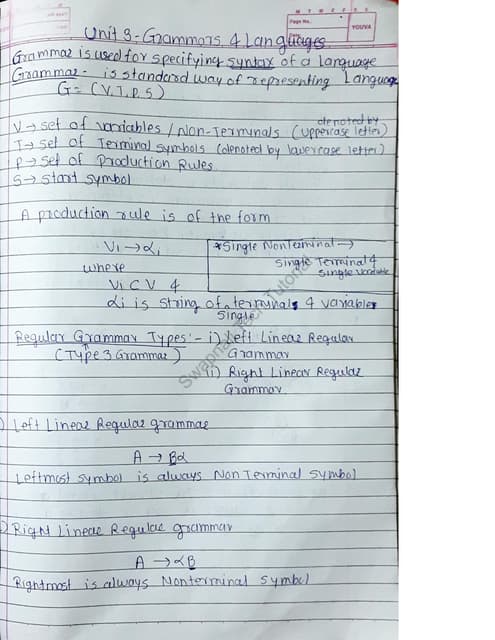 Page No.
YOUVA
Unit 3 - Grammars & Languages
Grammar is used for specifying syntax of a language
Grammar - is standard way of representing Language
G = (V, T, P, S)
V → set of variables / Non-Terminals (denoted by uppercase letter)
T → set of Terminal symbols (denoted by lowercase letter)
P → set of Production Rules
S → start symbol
A production rule is of the form
Vi → αi
where
Vi ⊂ V &
αi is string of terminals & variables
single
*Single Nonterminal →
Single Terminal &
Single variable
Regular Grammar Types :- i) Left Linear Regular
(Type 3 Grammar) Grammar
ii) Right Linear Regular
Grammar
Left Linear Regular grammar
A → Bα
Leftmost symbol is always Non Terminal symbol
Right Linear Regular grammar
A → αB
Rightmost is always Nonterminal symbol
Swapnali Tech Tutorial